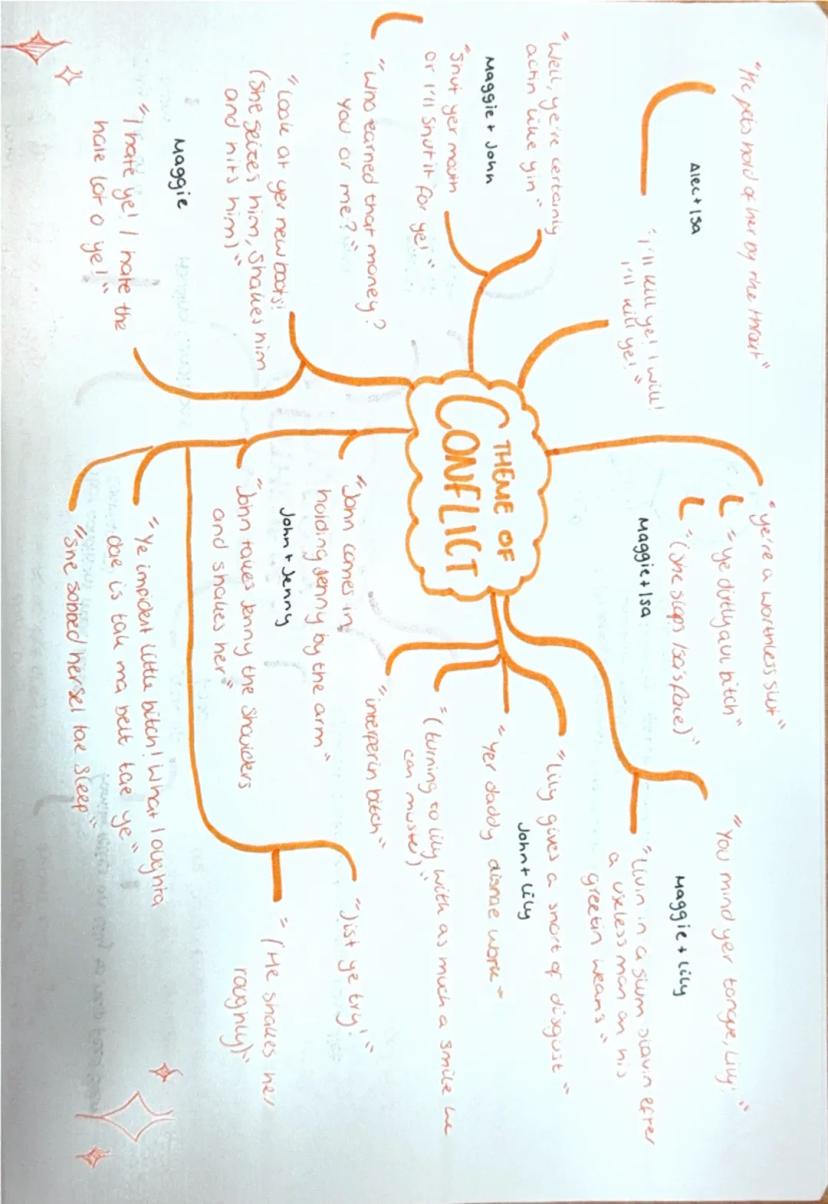 THEME OF
CONFLICT
Alec + Isa
"He gets hold of her by the throat"
"I'll kill ye! I will!
I'll kill ye!"
Maggie + John
"Well, ye're certainly
actin like yin"
"Shut yer mouth
or I'll shut it for ye!"
"Who earned that money?
You or me?"
Maggie
"Look at yer new boots!
(She seizes him, shakes him
and hits him)"
"I hate ye! I hate the
hale lot o ye!"
Maggie + Isa
"ye're a worthless slut"
"ye dirty aul bitch"
"(she slaps Isa's face)"
Maggie + Lily
"You mind yer tongue, Lily!"
"livin in a slum slavin efter
a useless man an his
greetin weans"
John + Lily
"Lily gives a snort of disgust"
"Yer daddy disnae work"
"(turning to Lily with as much a smile he
can muster)"
"interferin bitch"
John + Jenny
"John comes in,
holding Jenny by the arm"
"John takes Jenny the shoulders
and shakes her"
"Ye impident little bitch! What I oughta
dae is tak ma belt tae ye"
"She sobbed hersel tae sleep"
"Jist ye try!"
"(He shakes her
roughly)"